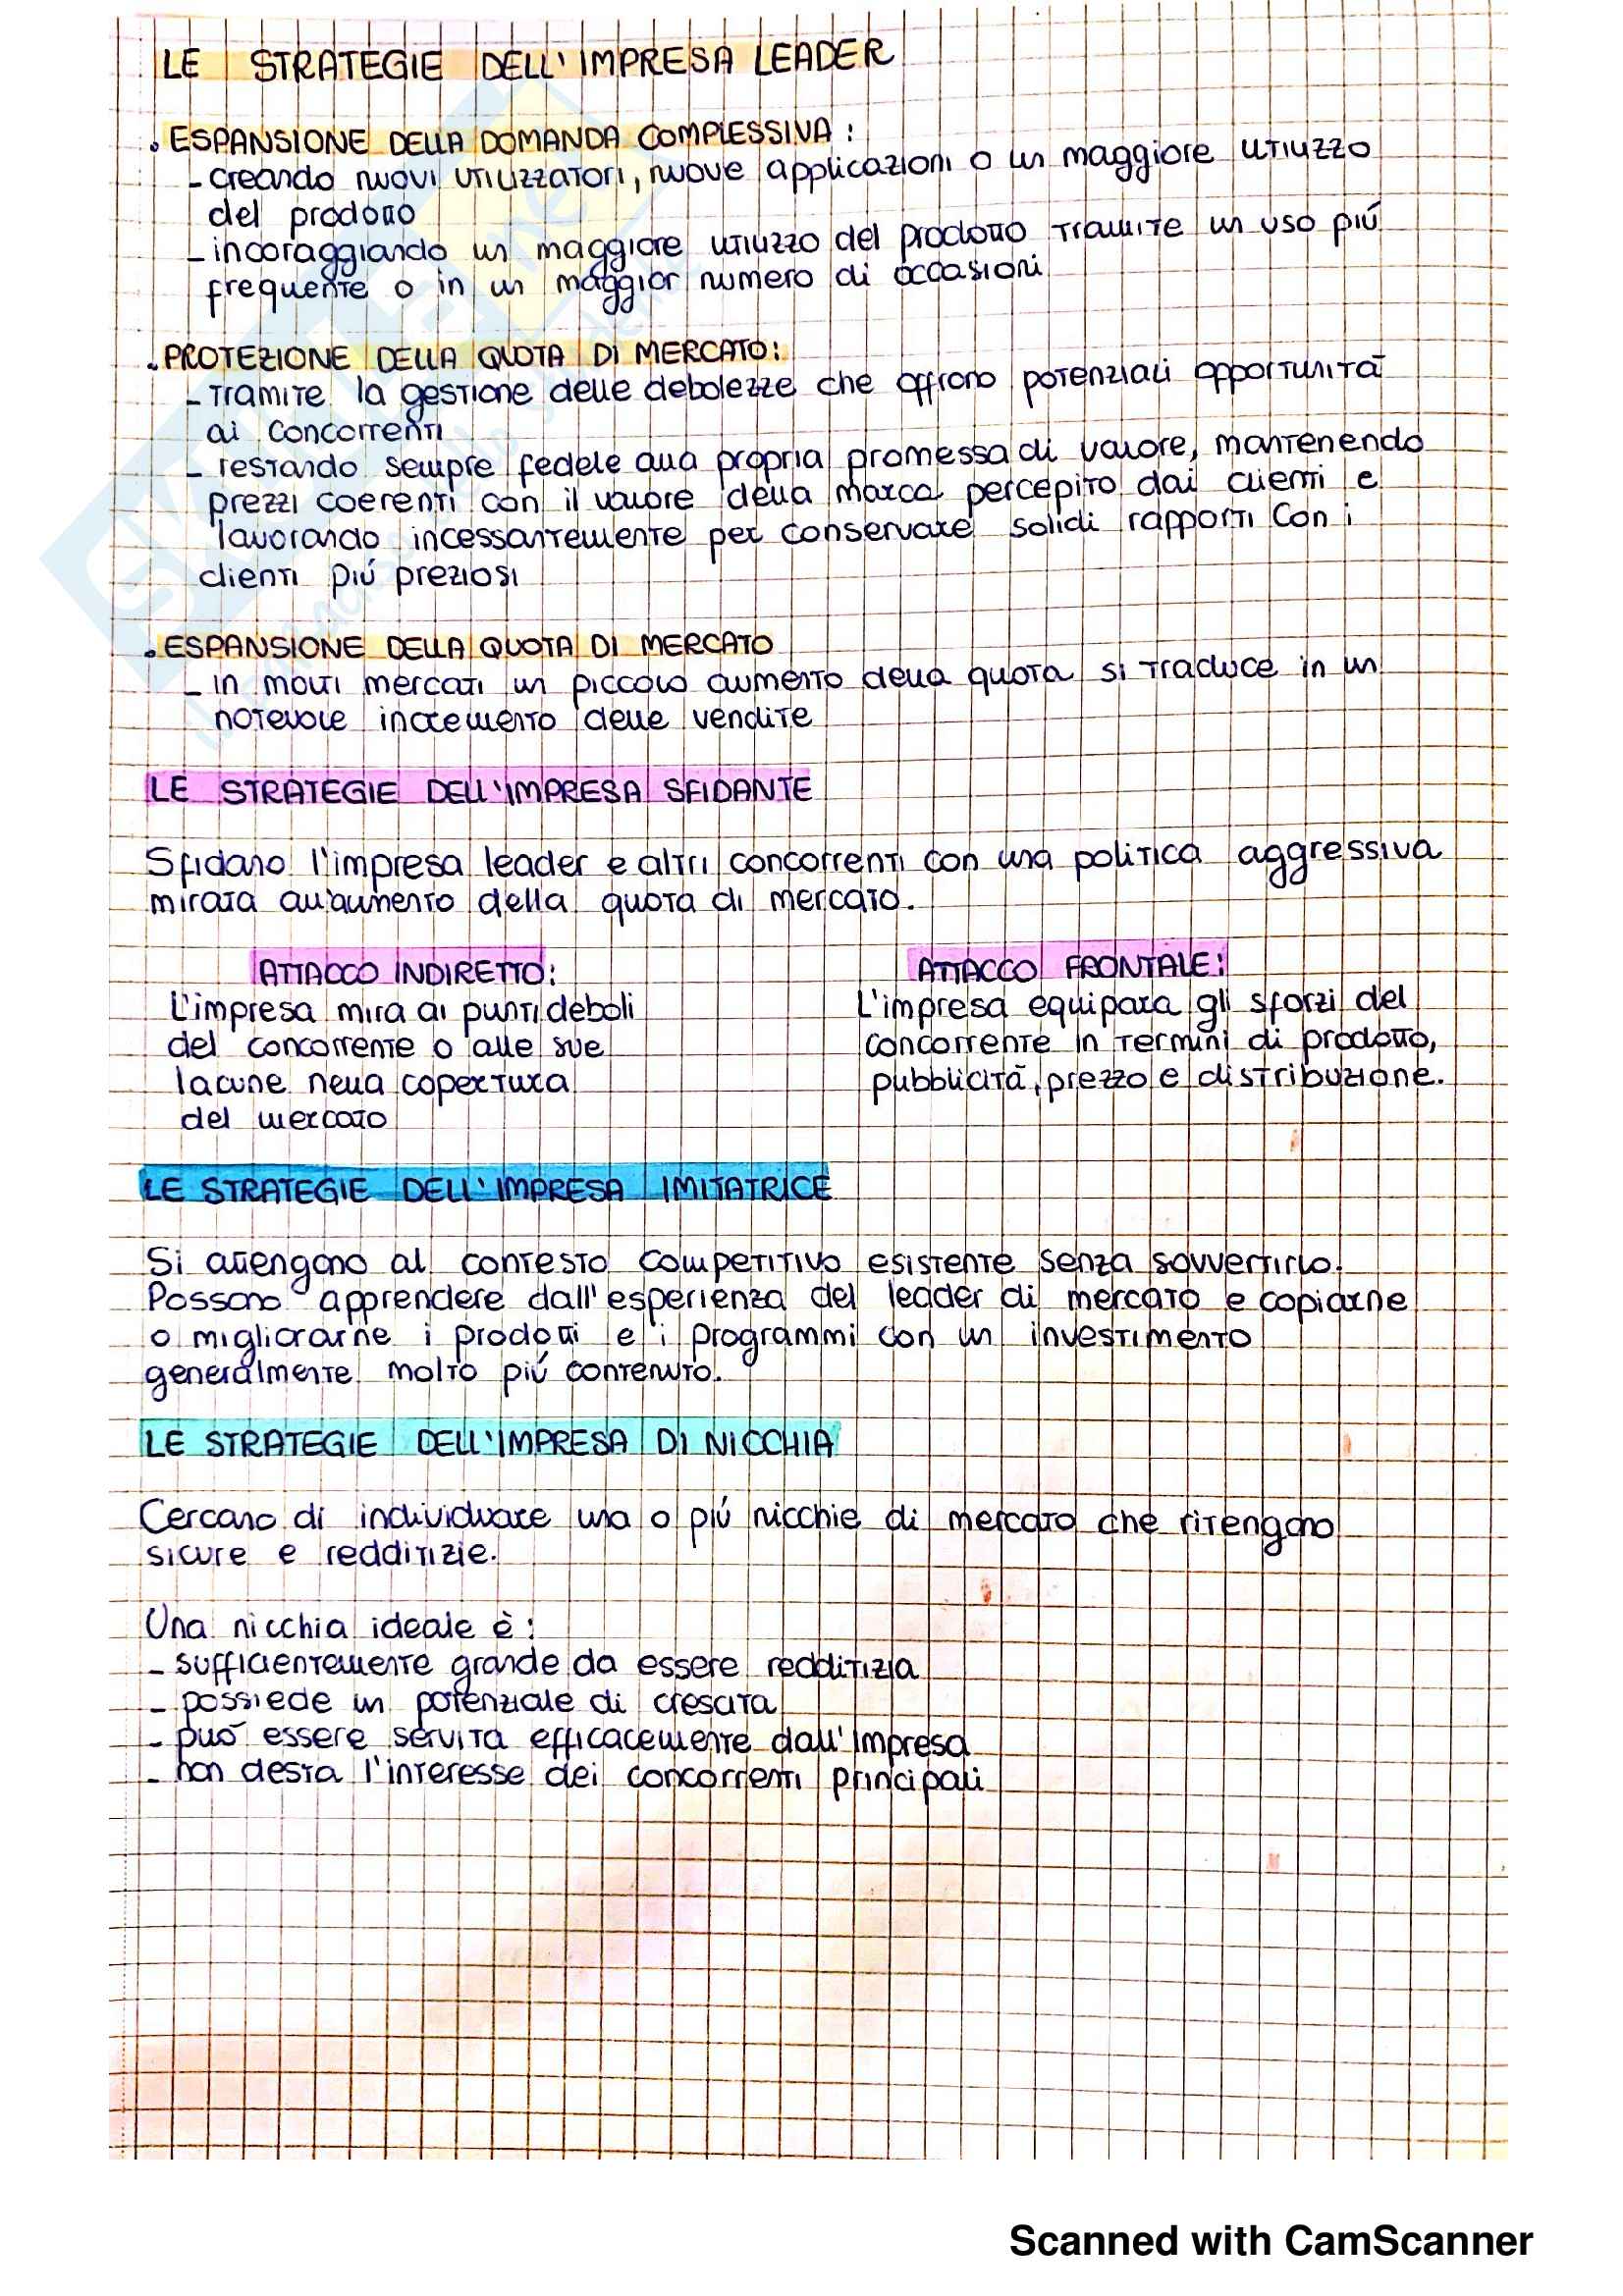 LE STRATEGIE DELL'IMPRESA LEADER
. ESPANSIONE DELLA DOMANDA COMPLESSIVA :
- creando nuovi utilizzatori, nuove applicazioni o un maggiore utilizzo
del prodotto
- incoraggiando un maggiore utilizzo del prodotto tramite un uso più
frequente o in un maggior numero di occasioni
. PROTEZIONE DELLA QUOTA DI MERCATO:
- tramite la gestione delle debolezze che offrono potenziali opportunità
ai concorrenti
- restando sempre fedele alla propria promessa di valore, mantenendo
prezzi coerenti con il valore della marca percepito dai clienti e
lavorando incessantemente per conservare solidi rapporti con i
clienti più preziosi
. ESPANSIONE DELLA QUOTA DI MERCATO
- in molti mercati un piccolo aumento della quota si traduce in un
notevole incremento delle vendite
LE STRATEGIE DELL'IMPRESA SFIDANTE
Sfidano l'impresa leader e altri concorrenti con una politica aggressiva
mirata all'aumento della quota di mercato.
ATTACCO INDIRETTO:
L'impresa mira ai punti deboli
del concorrente o alle sue
lacune nella copertura
del mercato
ATTACCO FRONTALE:
L'impresa equipara gli sforzi del
concorrente in termini di prodotto,
pubblicità, prezzo e distribuzione.
LE STRATEGIE DELL'IMPRESA IMITATRICE
Si attengono al contesto competitivo esistente senza sovvertirlo.
Possono apprendere dall'esperienza del leader di mercato e copiarne
o migliorarne i prodotti e i programmi con un investimento
generalmente molto più contenuto.
LE STRATEGIE DELL'IMPRESA DI NICCHIA
Cercano di individuare una o più nicchie di mercato che ritengono
sicure e redditizie.
Una nicchia ideale è:
- sufficientemente grande da essere redditizia
- possiede un potenziale di crescita
- può essere servita efficacemente dall'impresa
- non desta l'interesse dei concorrenti principali
Scanned with CamScanner